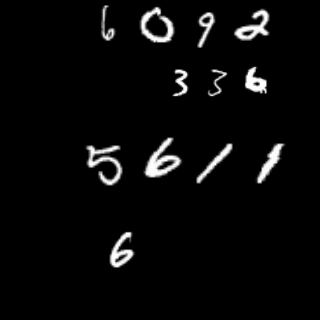 6 0 9 2
3 3 6
5 6 1 1
6